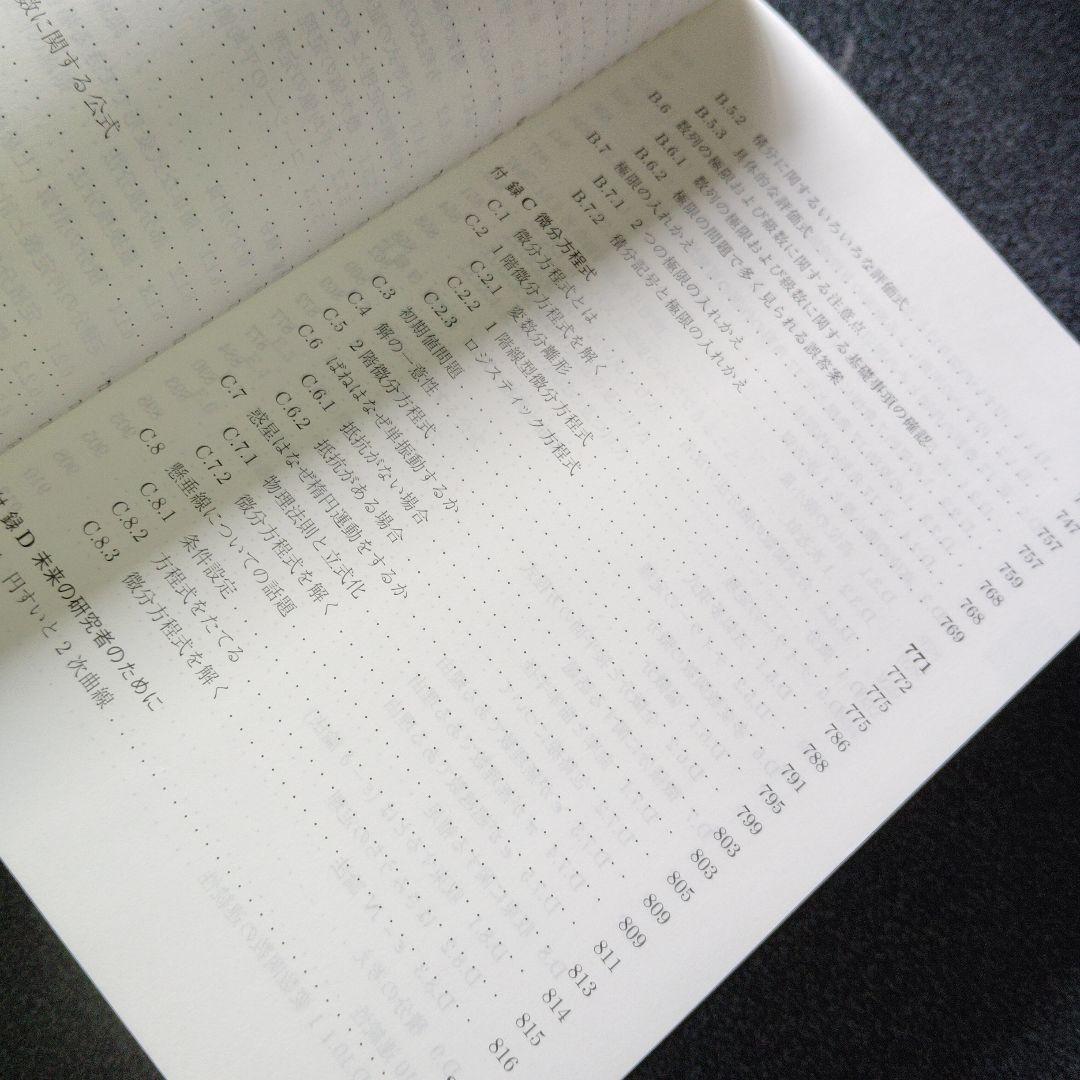 数に関する公式
B.5.2 積分に関するいろいろな評価式
B.5.3 具体的な評価式 747
B.6 数列の極限および級数に関する注意点 757
B.6.1 数列の極限および級数に関する基礎事項の確認 757
B.6.2 極限の問題で多く見られる誤答案 759
B.7 極限の入れかえ 768
B.7.1 2つの極限の入れかえ 768
B.7.2 積分記号と極限の入れかえ 769
付録C 微分方程式 771
C.1 微分方程式とは 772
C.2 1階微分方程式を解く 775
C.2.1 変数分離形 775
C.2.2 1階線型微分方程式 786
C.2.3 ロジスティック方程式 788
C.3 初期値問題 791
C.4 解の一意性 795
C.5 2階微分方程式 799
C.6 ばねはなぜ単振動するか 803
C.6.1 抵抗がない場合 803
C.6.2 抵抗がある場合 805
C.7 惑星はなぜ楕円運動をするか 809
C.7.1 物理法則と立式化 809
C.7.2 微分方程式を解く 811
C.8 懸垂線についての話題 813
C.8.1 条件設定 814
C.8.2 方程式をたてる 815
C.8.3 微分方程式を解く 816
付録D 未来の研究者のために
円すいと2次曲線